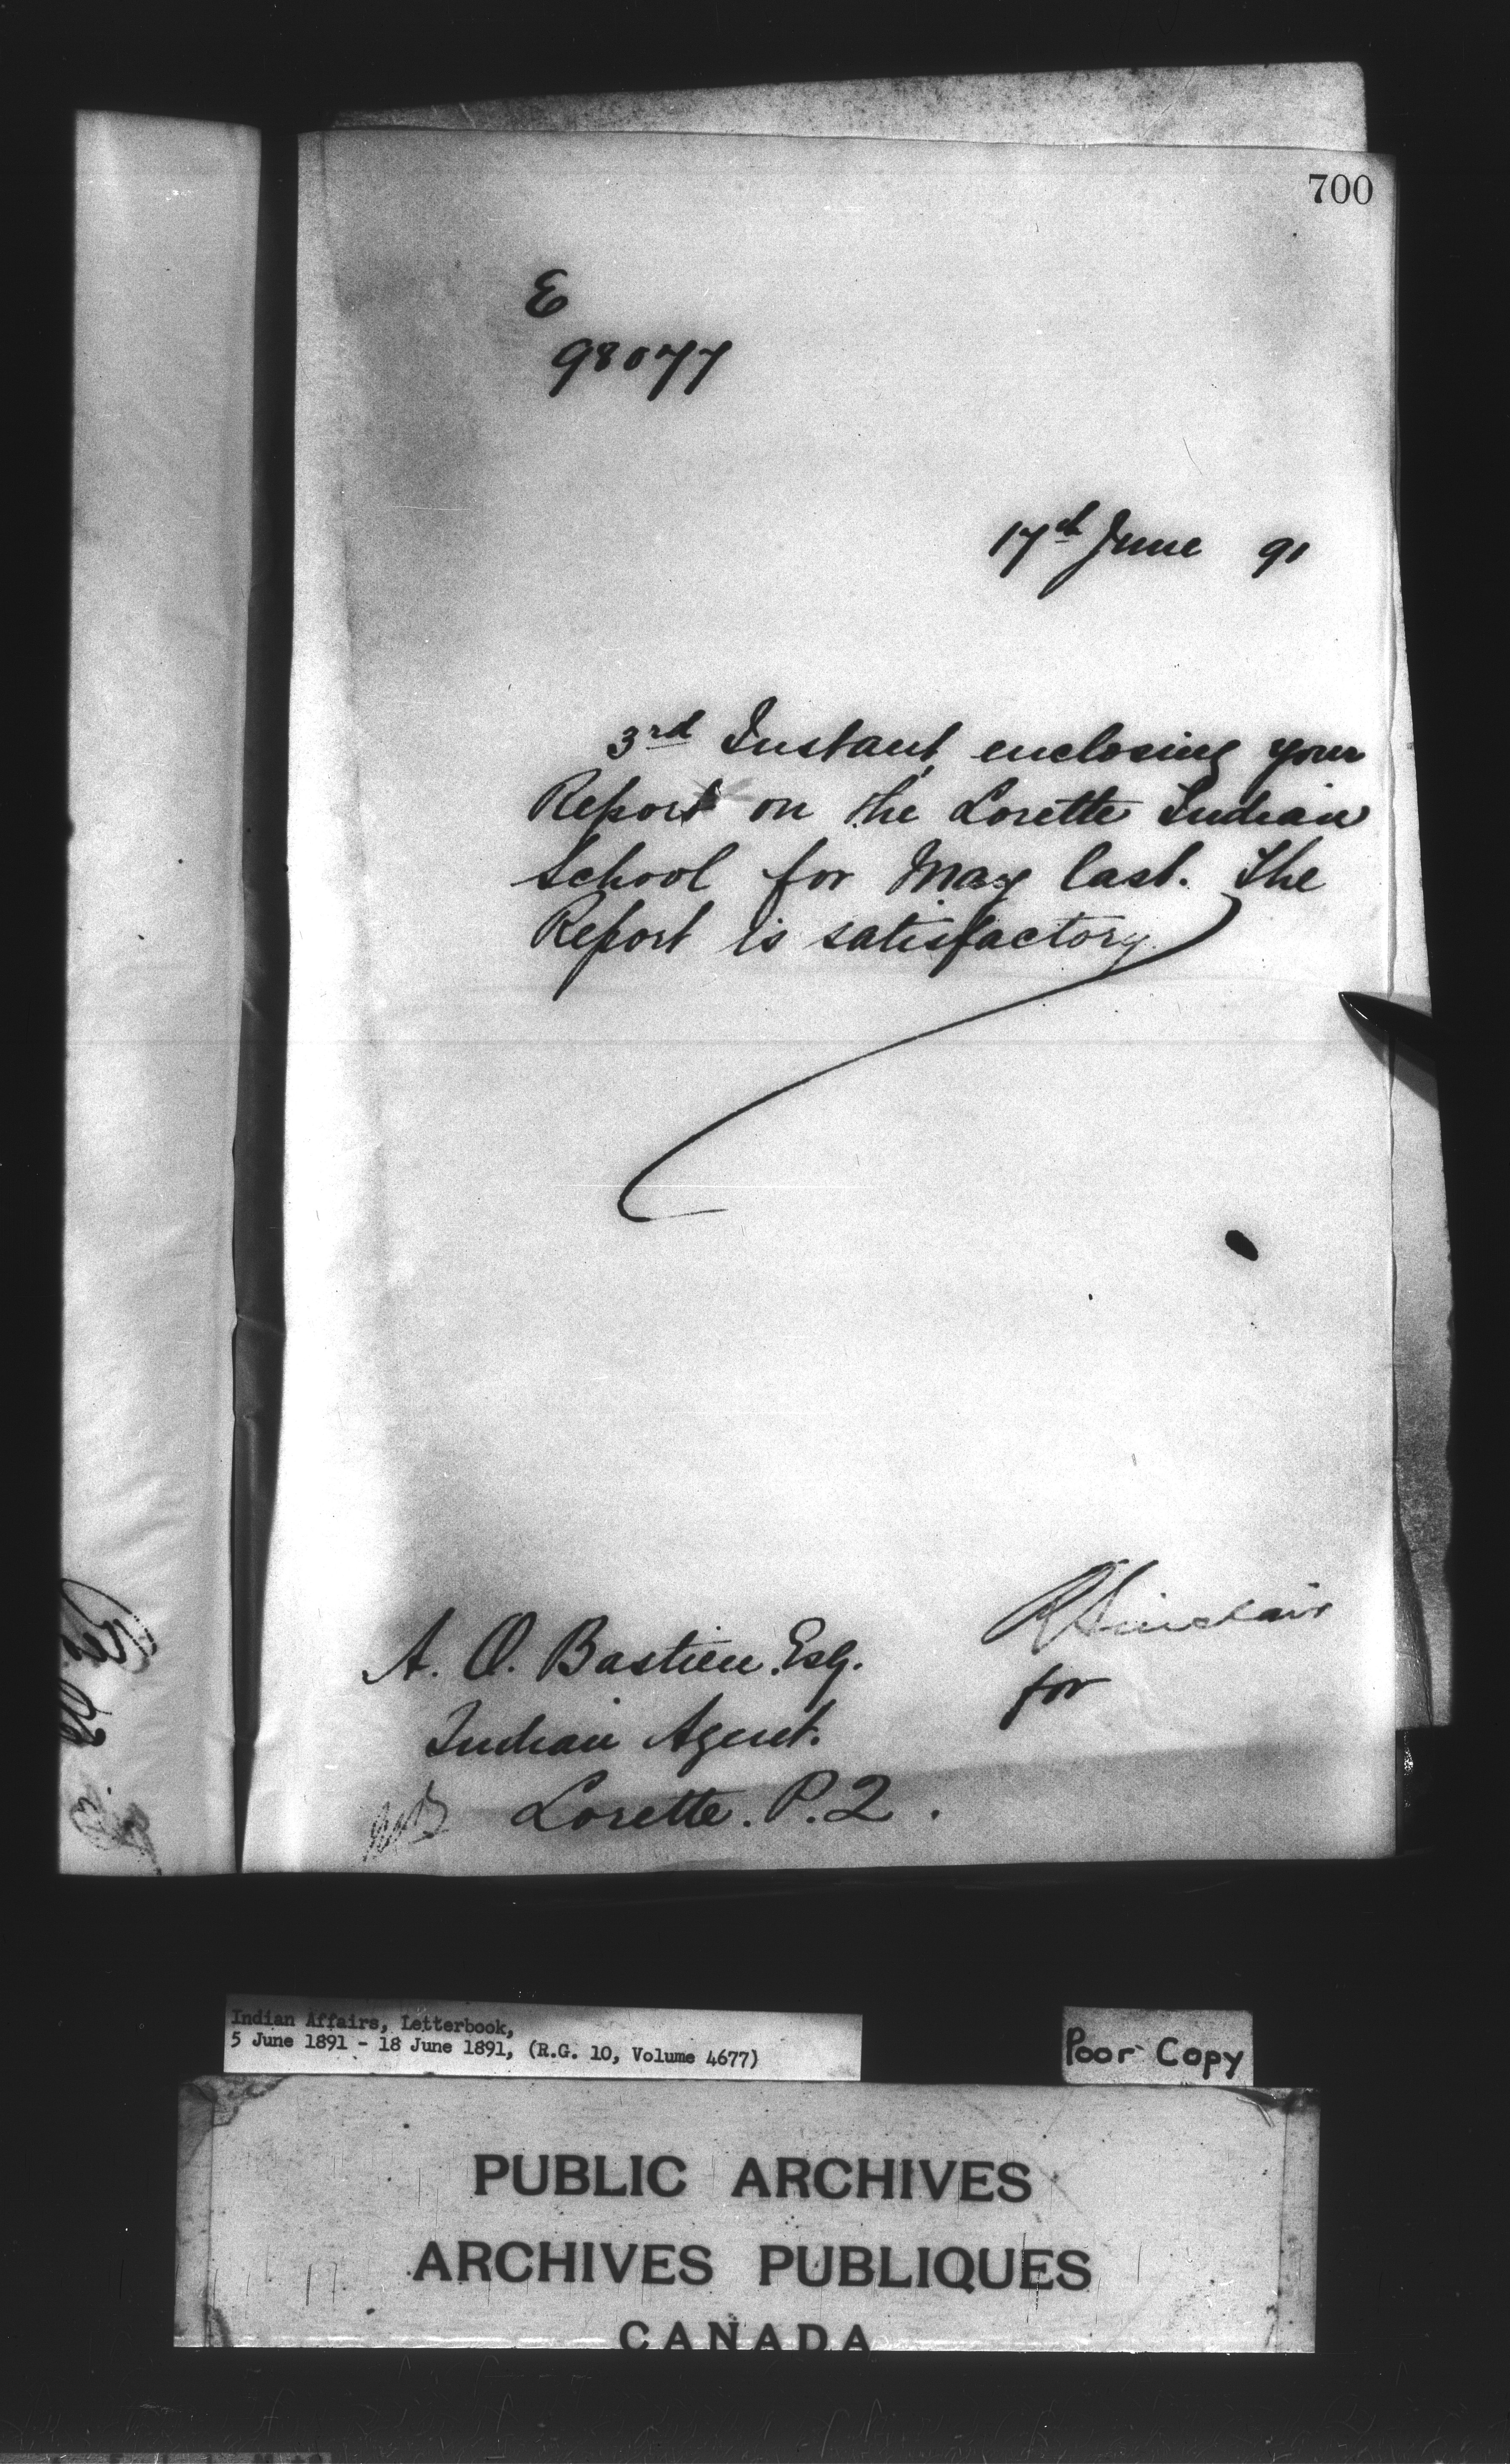 700
E
98077
17th June 91
3rd Instant, enclosing your
Report on the Lorette Indian
School for May last. The
Report is satisfactory.
R Sinclair
for
A. O. Bastien Esq.
Indian Agent.
Lorette. P.Q.
Indian Affairs, Letterbook,
5 June 1891 - 18 June 1891, (R.G. 10, Volume 4677)
Poor Copy
PUBLIC ARCHIVES
ARCHIVES PUBLIQUES
CANADA